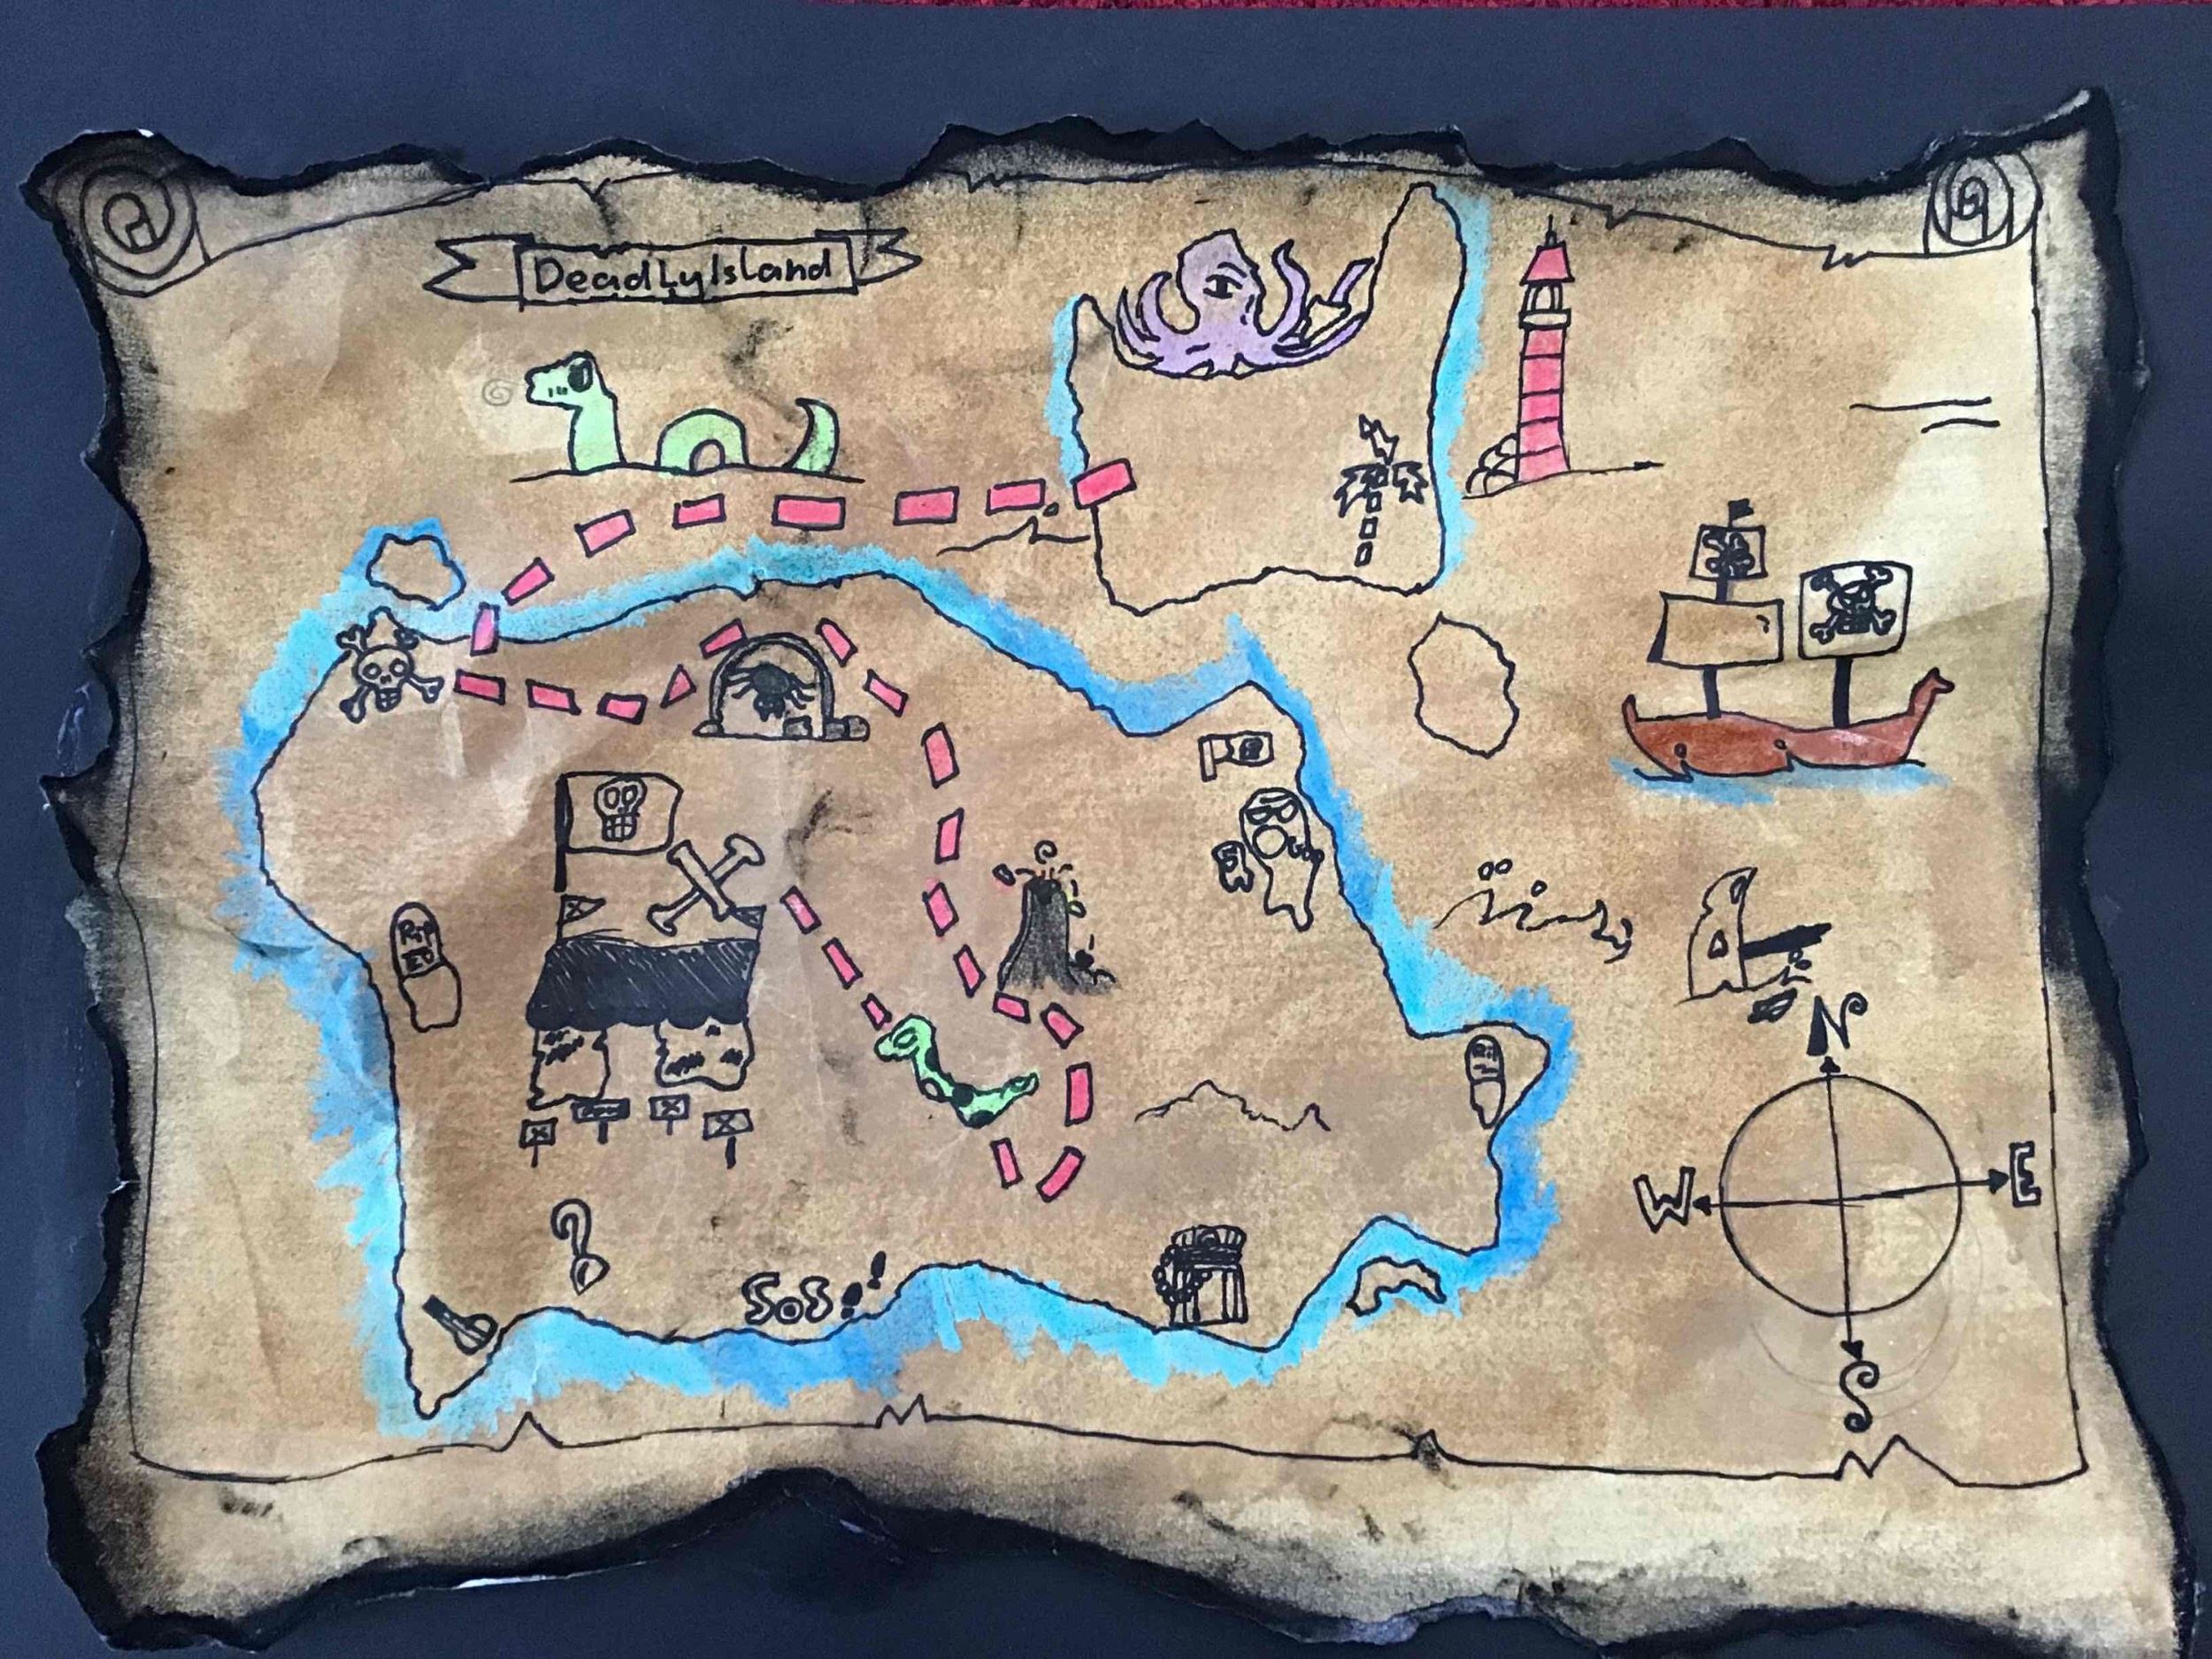 Deadly Island
RiP
SOS
N
W
E
S